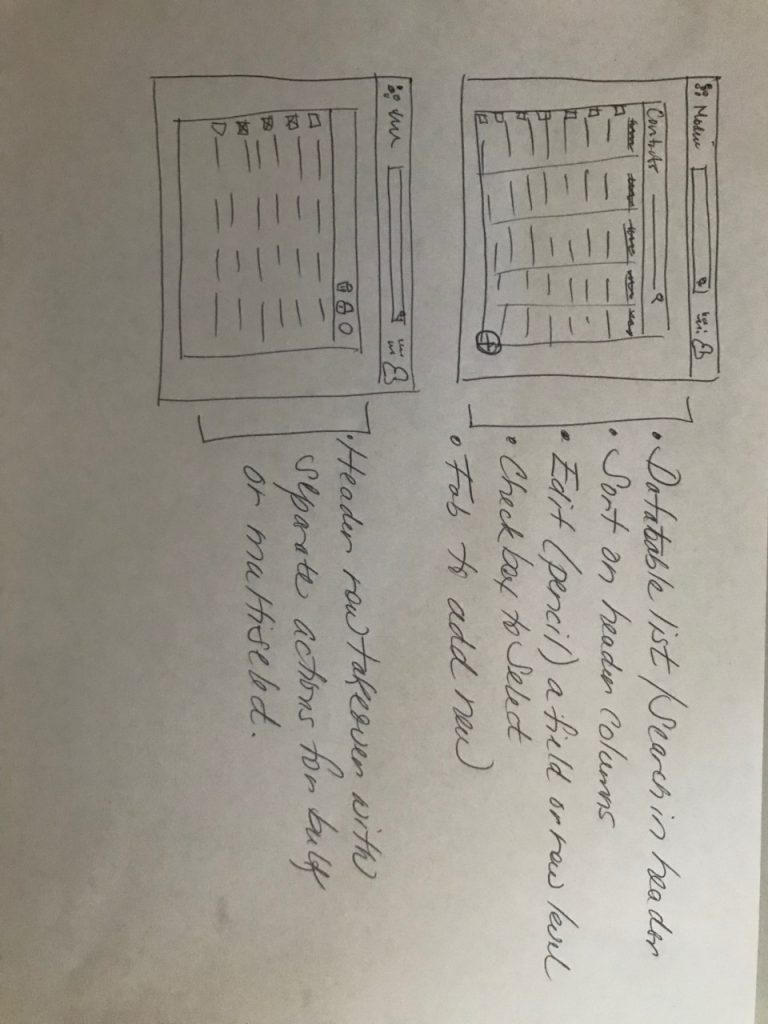 • Datatable list / search in header
• Sort on header columns
• Edit (pencil) a field or row level
• Checkbox to select
• Fab to add new
• Header row takeover with
separate actions for bulk
or multiselect.